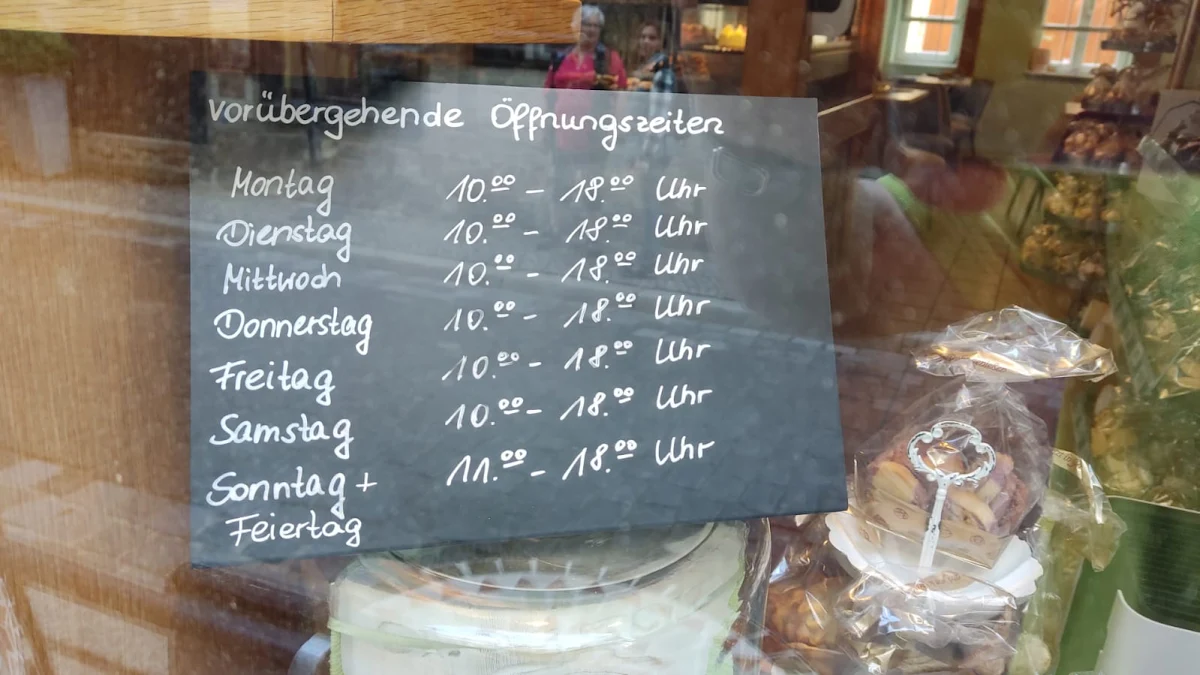 vorübergehende Öffnungszeiten
Montag 10.00 - 18.00 Uhr
Dienstag 10.00 - 18.00 Uhr
Mittwoch 10.00 - 18.00 Uhr
Donnerstag 10.00 - 18.00 Uhr
Freitag 10.00 - 18.00 Uhr
Samstag 10.00 - 18.00 Uhr
Sonntag + 11.00 - 18.00 Uhr
Feiertag